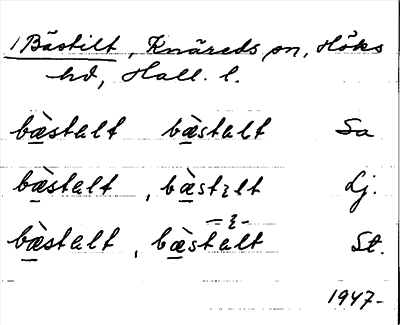 1 Bästilt, Knäreds sn, Höks
hd, Hall. l.
bæ̀stalt bæ̀stalt Sa
bæ̀stalt, bæ̀stꝛlt Lj.
=ꝛ-
bæ̀stalt, bæ̀stalt St.
1947-